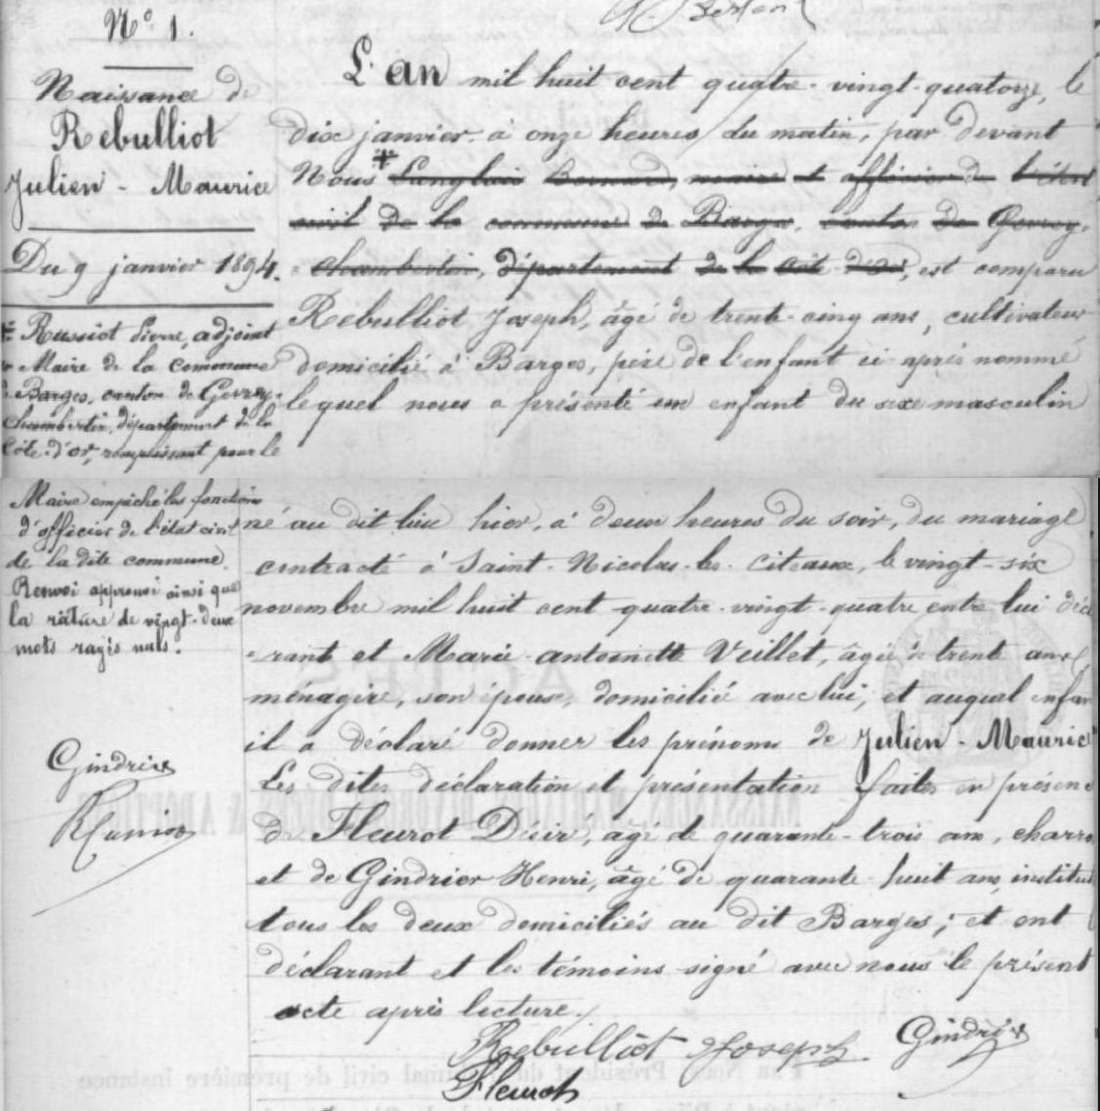 N° 1.
Naissance de
Rebulliot
Julien - Maurice
Du 9 janvier 1894.
L'an mil huit cent quatre-vingt-quatorze, le
dix janvier à onze heures du matin, par devant
Nous * Langlois Bernard, maire et officier de l'état
civil de la commune de Barges, canton de Gevrey-
-Chambertin, département de la Côte-d'or, est comparu
Rebulliot Joseph, âgé de trente-cinq ans, cultivateur
domicilié à Barges, père de l'enfant ci-après nommé
lequel nous a présenté un enfant du sexe masculin
né au dit lieu hier, à deux heures du soir, du mariage
contracté à Saint-Nicolas-les-Citeaux, le vingt-six
novembre mil huit cent quatre-vingt-quatre entre lui décl
-rant et Marie-antoinette Veillet, âgée de trente ans,
ménagère, son épouse, domiciliée avec lui, et auquel enfan
il a déclaré donner les prénoms de Julien - Maurice
Les dites déclaration et présentation faites en présenc
de Fleurot Désiré, âgé de quarante-trois ans, charro
et de Gindrier Henri, âgé de quarante-huit ans, institu
tous les deux domiciliés au dit Barges; et ont
déclarant et les témoins signé avec nous le présent
acte après lecture.
Rebulliot Joseph Gindrier
Fleurot
* Russiot Pierre, adjoint
Maire de la commune
de Barges, canton de Gevrey-
Chambertin, département de la
Côte-d'or, remplissant pour le
Maire empêché les fonctions
d'officier de l'état civil
de la dite commune.
Renvoi approuvé ainsi que
la rature de vingt-deux
mots rayés nuls.
Gindrier